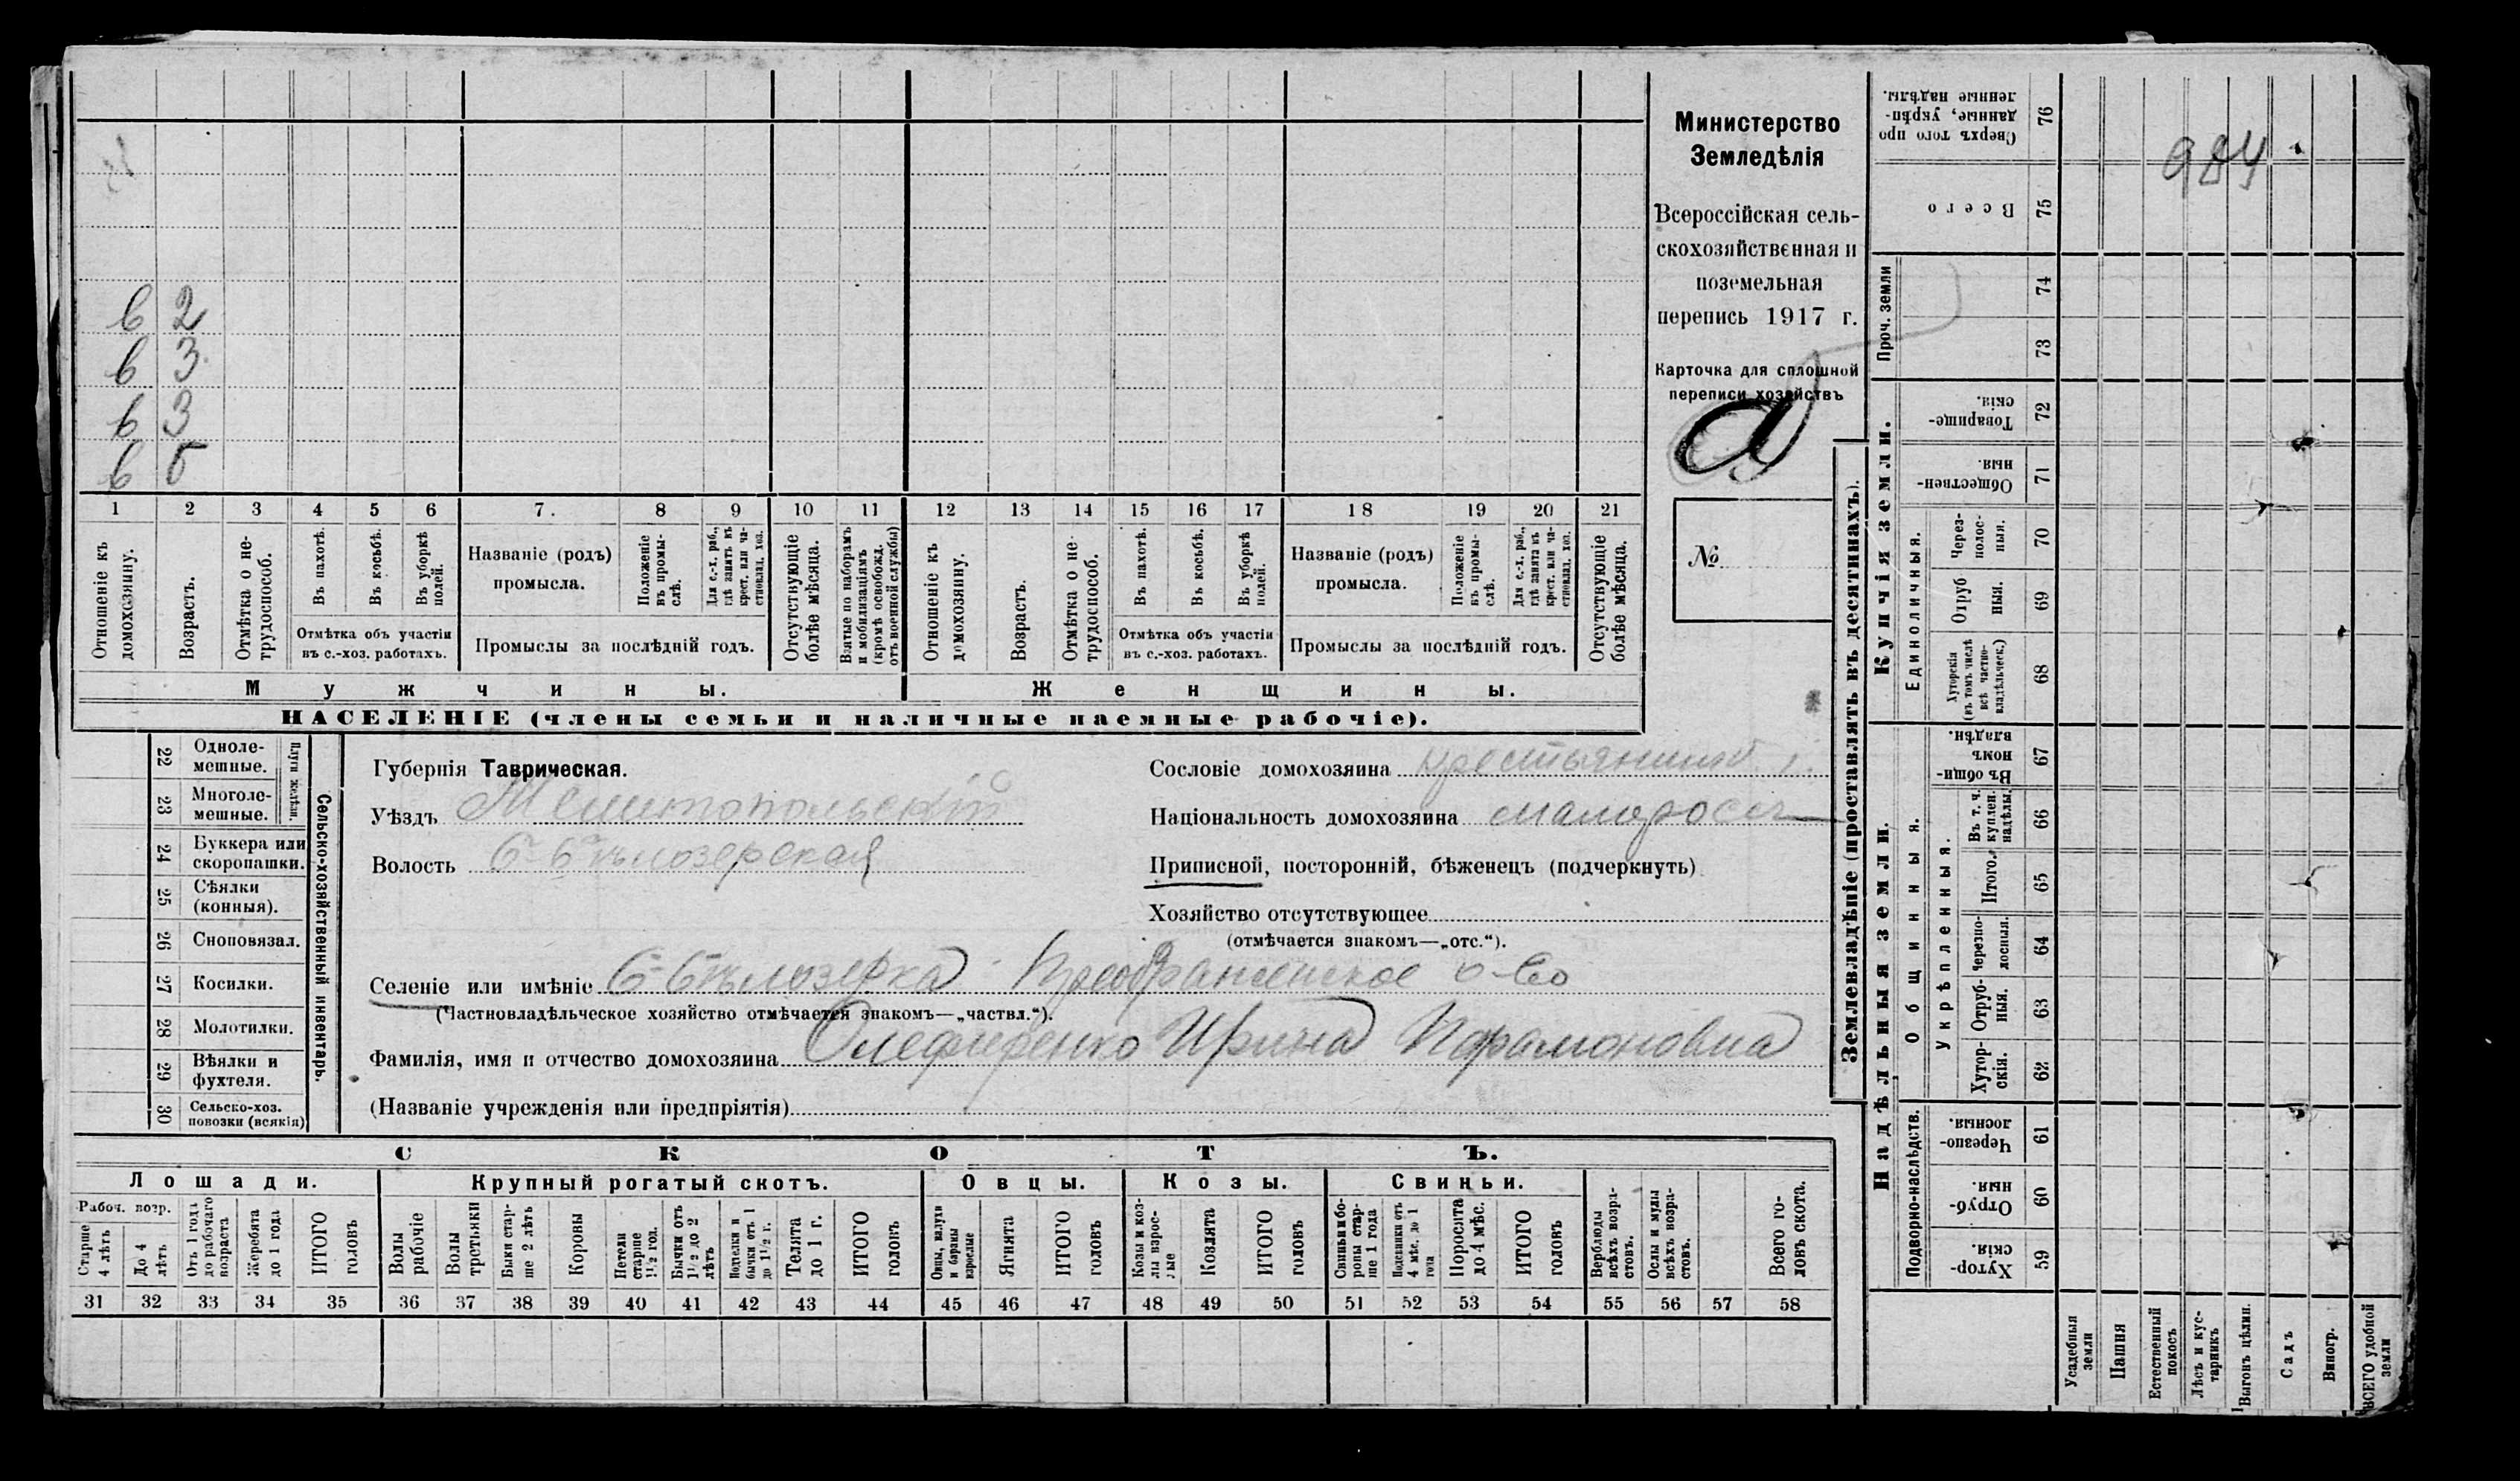 984
в 2
в 3
в 3
в 5
1 2 3 4 5 6 7. 8 9 10 11 12 13 14 15 16 17 18 19 20 21
Отношеніе къ домохозяину.
Возрастъ.
Отмѣтка о не-трудоспособ.
Въ пахотѣ.
Въ косьбѣ.
Въ уборкѣ полей.
Отмѣтка объ участіи
въ с.-хоз. работахъ.
Названіе (родъ)
промысла.
Положеніе въ промы-слѣ.
Для с.-х. раб., гдѣ занятъ въ крест. или ча-стновлад. хоз.
Промыслы за послѣдній годъ.
Отсутствующіе болѣе мѣсяца.
Взятые по наборамъ и мобилизаціямъ (кромѣ освобожд. отъ военной службы)
Отношеніе къ домохозяину.
Возрастъ.
Отмѣтка о не-трудоспособ.
Въ пахотѣ.
Въ косьбѣ.
Въ уборкѣ полей.
Отмѣтка объ участіи
въ с.-хоз. работахъ.
Названіе (родъ)
промысла.
Положеніе въ промы-слѣ.
Для с.-х. раб., гдѣ занята въ крест. или ча-стновлад. хоз.
Промыслы за послѣдній годъ.
Отсутствующіе болѣе мѣсяца.
Мужчины.
Женщины.
НАСЕЛЕНІЕ (члены семьи и наличные наемные рабочіе).
Министерство
Земледѣлія
Всероссійская сель-
скохозяйственная и
поземельная
перепись 1917 г.
Карточка для сплошной
переписи хозяйствъ
№
22 Одноле-мешные.
23 Многоле-мешные.
Плуги желѣзн.
24 Буккера или скоропашки.
25 Сѣялки (конныя).
26 Сноповязал.
27 Косилки.
28 Молотилки.
29 Вѣялки и фухтеля.
30 Сельско-хоз. повозки (всякія)
Сельско-хозяйственный инвентарь.
Губернія Таврическая.
Уѣздъ Мелитопольскій
Волость Б-Бѣлозерская
Сословіе домохозяина крестьянинъ
Національность домохозяина малоросс
Приписной, посторонній, бѣженецъ (подчеркнуть)
Хозяйство отсутствующее
(отмѣчается знакомъ—„отс.“).
Селеніе или имѣніе Б-Бѣлозерка Преображенское о-во
(Частновладѣльческое хозяйство отмѣчается знакомъ—„частвл.“).
Фамилія, имя и отчество домохозяина Олефиренко Ирина Парамоновна
(Названіе учрежденія или предпріятія)
СКОТЪ.
Лошади. Крупный рогатый скотъ. Овцы. Козы. Свиньи.
Рабоч. возр.
Старше 4 лѣтъ
До 4 лѣтъ
Отъ 1 года до рабочаго возраста
Жеребята до 1 года
ИТОГО головъ
Волы рабочіе
Волы третьяки
Быки стар-ше 2 лѣтъ
Коровы
Петели старше 1 1/2 год.
Бычки отъ 1 1/2 до 2 лѣтъ
Подтелки и бычки отъ 1 до 1 1/2 г.
Телята до 1 г.
ИТОГО головъ
Овцы, валухи и бараны взрослые
Ягнята
ИТОГО головъ
Козы и коз-лы взрос-лые
Козлята
ИТОГО головъ
Свиньи и бо-ровы стар-ше 1 года
Подсвинки отъ 4 мѣс. до 1 года
Поросята до 4 мѣс.
ИТОГО головъ
Верблюды всѣхъ возра-стовъ.
Ослы и мулы всѣхъ возра-стовъ.
Всего го-ловъ скота.
31 32 33 34 35 36 37 38 39 40 41 42 43 44 45 46 47 48 49 50 51 52 53 54 55 56 57 58
Землевладѣніе (проставлять въ десятинахъ).
Купчія земли.
Надѣльныя земли.
Сверхъ того про-данные, укрѣп-ленные надѣлы. 76
Всего 75
Проч. земли
74
73
Товарище-скія. 72
Обществен-ныя. 71
Единоличныя.
Через-полос-ныя. 70
Отруб-ныя. 69
Хуторскія (въ томъ числѣ всѣ частно-владѣльческ.) 68
Общинныя.
Въ общин-номъ владѣн. 67
Укрѣпленныя.
Въ т. ч. куплен. надѣлы. 66
Итого. 65
Черезпо-лосныя. 64
Отруб-ныя. 63
Хутор-скія. 62
Подворно-наслѣдств.
Черезпо-лосныя. 61
Отруб-ныя. 60
Хутор-скія. 59
Усадебныя земли
Пашня
Естественный покосъ
Лѣсъ и кус-тарникъ
Выгонъ цѣлин.
Садъ
Виногр.
ВСЕГО удобной земли